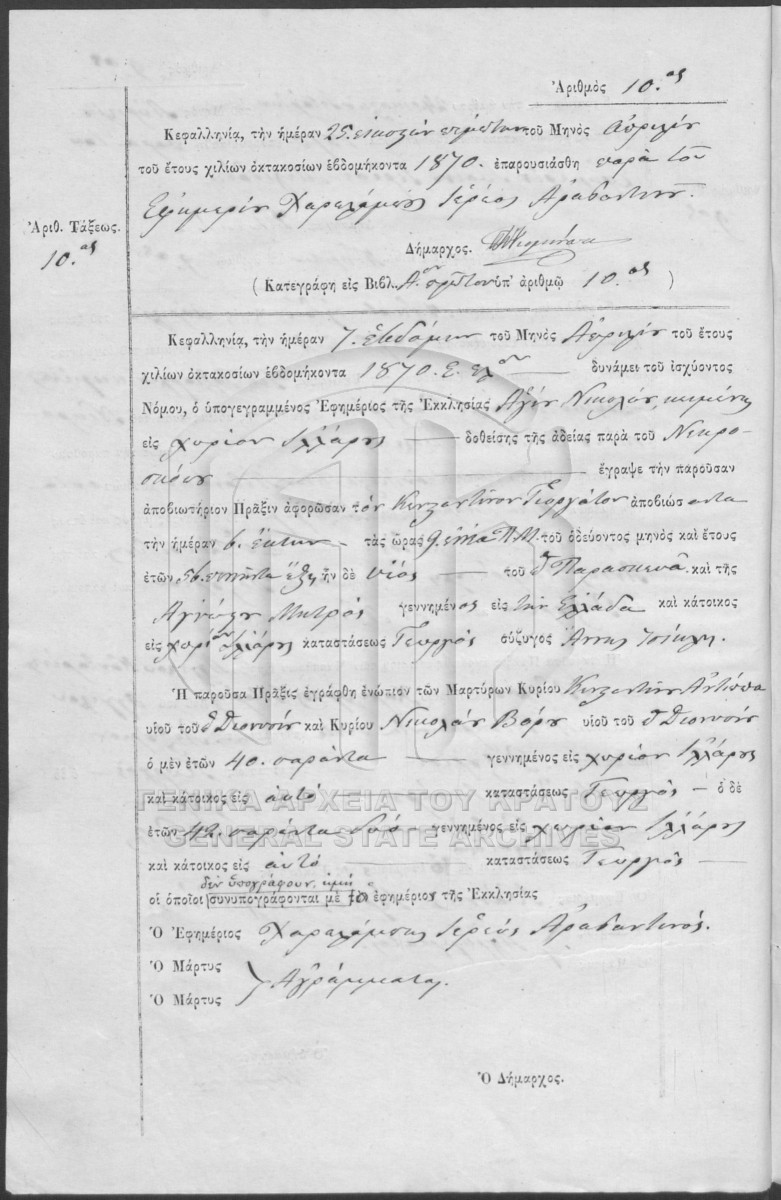 Ἀριθμὸς 10.ος
Κεφαλληνία, τὴν ἡμέραν 25. εἰκοστὴν πέμπτην τοῦ Μηνὸς Ἀπριλίου
τοῦ ἔτους χιλίων ὀκτακοσίων ἑβδομήκοντα 1870. ἐπαρουσιάσθη παρὰ τοῦ
Ἐφημερίου Χαραλάμπους Ἱερέος Ἀραβαντινοῦ.
Ἀριθ. Τάξεως.
10.ος
Δήμαρχος.
( Κατεγράφη εἰς Βιβλ. Α.ον πρῶτον ὑπ' ἀριθμῷ 10.ος )
Κεφαλληνία, τὴν ἡμέραν 7. ἑβδόμην τοῦ Μηνὸς Ἀπριλίου τοῦ ἔτους
χιλίων ὀκτακοσίων ἑβδομήκοντα 1870. Ε. δυνάμει τοῦ ἰσχύοντος
Νόμου, ὁ ὑπογεγραμμένος Ἐφημέριος τῆς Ἐκκλησίας Ἁγίου Νικολάου, κειμένης
εἰς χωρίον δοθείσης τῆς ἀδείας παρὰ τοῦ Νεκρο-
σκόπου ἔγραψε τὴν παροῦσαν
ἀποβιωτήριον Πρᾶξιν ἀφορῶσαν τὸν Κωνσταντῖνον Γεωργάτον ἀποβιώσαντα
τὴν ἡμέραν 6. ἕκτην τὰς ὥρας 9. ἐννέα Π.Μ. τοῦ ὁδεύοντος μηνὸς καὶ ἔτους
ἐτῶν 56. πενῆντα ἕξη, ἦν δὲ υἱὸς τοῦ π Παρασκευᾶ καὶ τῆς
Ἀγνώστου Μητρὸς γεννημένος εἰς τὴν Ἑλλάδα καὶ κάτοικος
εἰς χωρίον καταστάσεως Γεωργὸς σύζυγος Ἄννης
Ἡ παροῦσα Πρᾶξις ἐγράφθη ἐνώπιον τῶν Μαρτύρων Κυρίου Κωνσταντίνου
υἱοῦ τοῦ π Διονυσίου καὶ Κυρίου Νικολάου υἱοῦ τοῦ π Διονυσίου
ὁ μὲν ἐτῶν 40. σαράντα γεννημένος εἰς χωρίον
καὶ κάτοικος εἰς αὐτό καταστάσεως Γεωργὸς - ὁ δὲ
ἐτῶν 42. σαράντα δύο γεννημένος εἰς χωρίον
καὶ κάτοικος εἰς αὐτό καταστάσεως Γεωργὸς
δὲν ὑπογράφουν, εἰμὴ
οἱ ὁποῖοι συνυπογράφονται μὲ ὁ ἐφημέριος τῆς Ἐκκλησίας
Ὁ Ἐφημέριος Χαραλάμπης Ἱερεὺς Ἀραβαντινός.
Ὁ Μάρτυς
Ὁ Μάρτυς
Ἀγράμματοι.
Ὁ Δήμαρχος.
ΓΕΝΙΚΑ ΑΡΧΕΙΑ ΤΟΥ ΚΡΑΤΟΥΣ
GENERAL STATE ARCHIVES